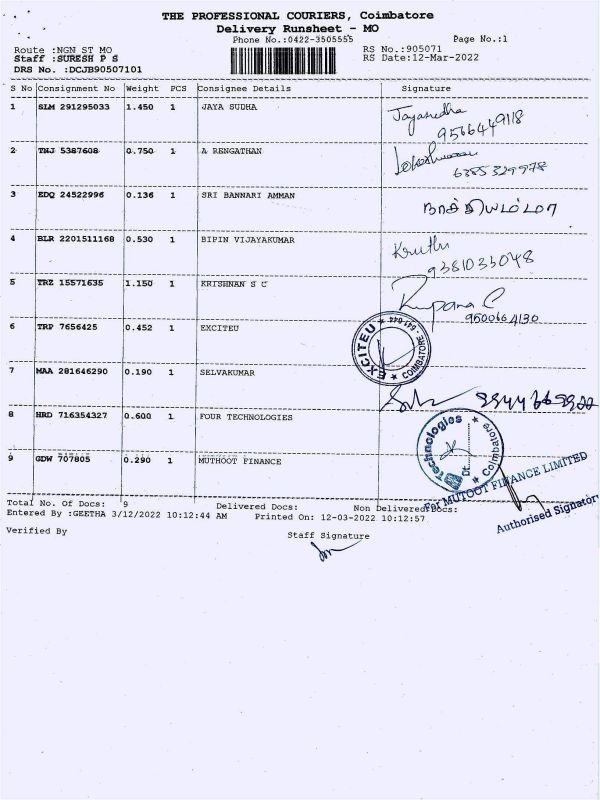 THE PROFESSIONAL COURIERS, Coimbatore
Delivery Runsheet - MO
Phone No.:0422-3505555
Page No.:1
Route :NGN ST MO
RS No.:905071
Staff :SURESH P S
RS Date:12-Mar-2022
DRS No. :DCJB90507101
S No Consignment No Weight PCS Consignee Details Signature
1 SLM 291295033 1.450 1 JAYA SUDHA
9566449118
2 TNJ 5387608 0.750 1 A RENGATHAN
6385329978
3 EDQ 24522996 0.136 1 SRI BANNARI AMMAN
நாச்சியம்மா
4 BLR 2201511168 0.530 1 BIPIN VIJAYAKUMAR
Kruthi
9381033048
5 TRZ 15571635 1.150 1 KRISHNAN S C
Rupana C
9500664130
6 TRP 7656425 0.452 1 EXCITEU
EXCITEU ★ COIMBATORE - 641 044 ★
7 MAA 281646290 0.190 1 SELVAKUMAR
8 HRD 716354327 0.600 1 FOUR TECHNOLOGIES
Technologies ★ Coimbatore ★
9 GDW 707805 0.290 1 MUTHOOT FINANCE
For MUTOOT FINANCE LIMITED
Authorised Signatory
Total No. Of Docs: 9 Delivered Docs: Non Delivered Docs:
Entered By :GEETHA 3/12/2022 10:12:44 AM Printed On: 12-03-2022 10:12:57
Verified By
Staff Signature